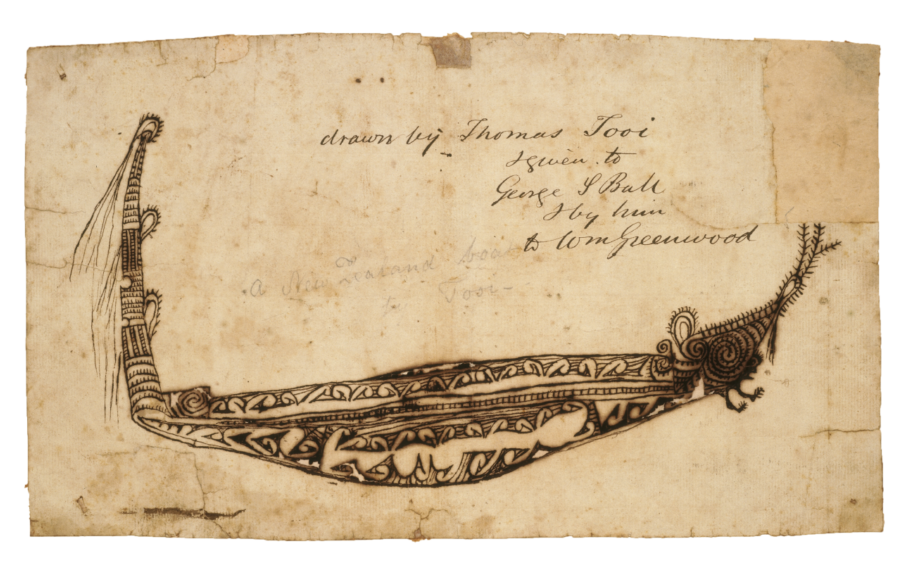 drawn by Thomas Tooi
& given to
George S Bull
& by him
to Wm Greenwood
a New Zealand boat
by Tooi-